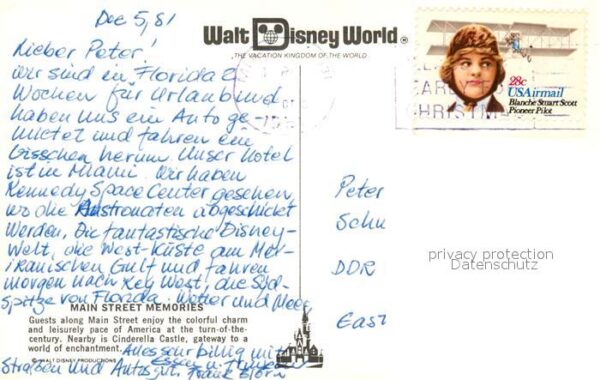 Dec 5, 81
Walt Disney World®
THE VACATION KINGDOM OF THE WORLD
Lieber Peter!
Wir sind in Florida 2
Wochen für Urlaub und
haben uns ein Auto ge-
mietet und fahren ein
bisschen herum. Unser Hotel
ist in Miami. Wir haben
Kennedy Space Center gesehen,
wo die Austronaten abgeschickt
werden. Die fantastische Disney-
Welt, die West-Küste am Mex-
ikanischen Gulf und fahren
morgen nach Key West, die Süd-
spitze von Florida. Wetter und Meer
MAIN STREET MEMORIES
Guests along Main Street enjoy the colorful charm
and leisurely pace of America at the turn-of-the-
century. Nearby is Cinderella Castle, gateway to a
world of enchantment.
© WALT DISNEY PRODUCTIONS
Alles sehr billig mit
Essen u.
Straßen und Autos gut. Frank
28c
USAirmail
Blanche Stuart Scott
Pioneer Pilot
CHRISTM
Peter
Schu
DDR
East
privacy protection
Datenschutz